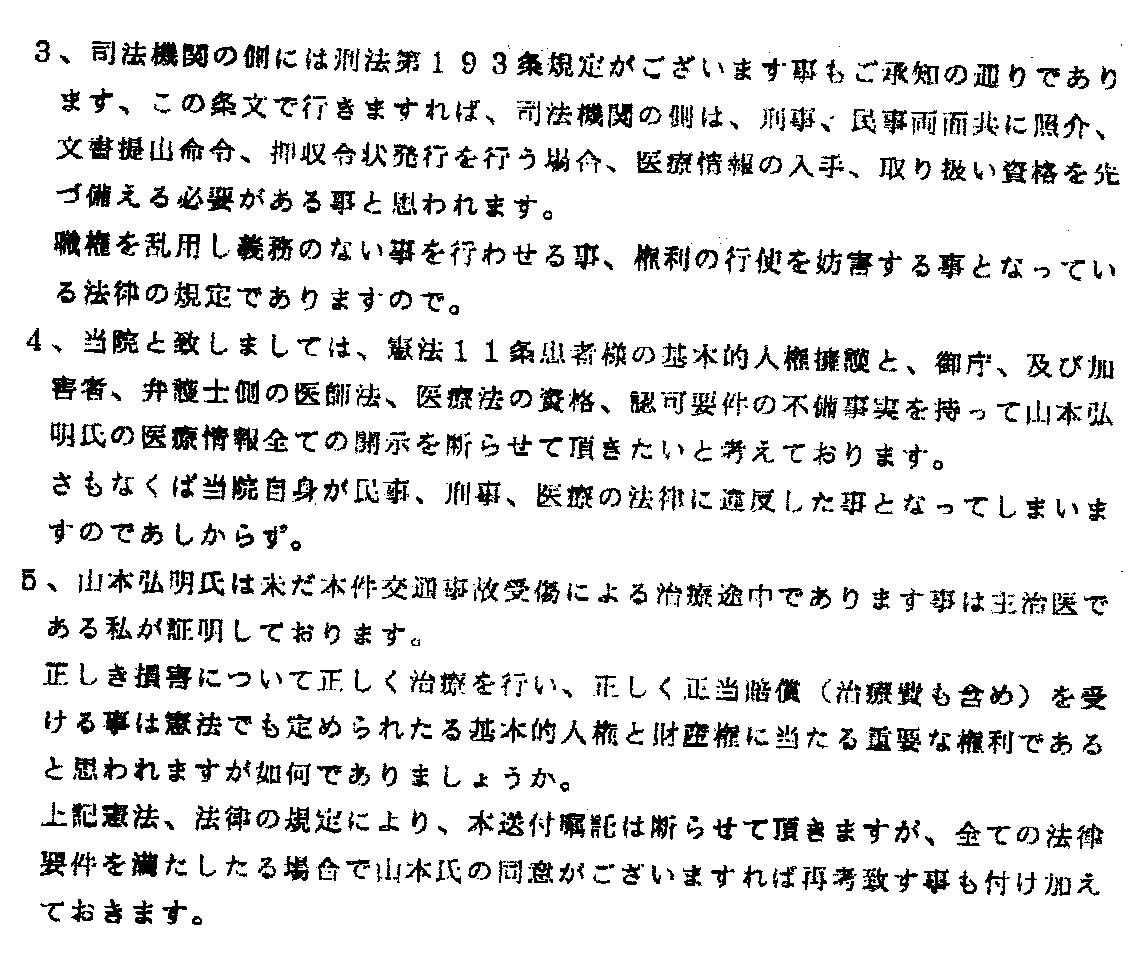 3、司法機関の側には刑法第193条規定がございます事もご承知の通りであり
ます、この条文で行きますれば、司法機関の側は、刑事、民事両面共に照介、
文書提出命令、押収令状発行を行う場合、医療情報の入手、取り扱い資格を先
づ備える必要がある事と思われます。
職権を乱用し義務のない事を行わせる事、権利の行使を妨害する事となってい
る法律の規定でありますので。
4、当院と致しましては、憲法11条患者様の基本的人権擁護と、御庁、及び加
害者、弁護士側の医師法、医療法の資格、認可要件の不備事実を持って山本弘
明氏の医療情報全ての開示を断らせて頂きたいと考えております。
さもなくば当院自身が民事、刑事、医療の法律に違反した事となってしまいま
すのであしからず。
5、山本弘明氏は未だ本件交通事故受傷による治療途中であります事は主治医で
ある私が証明しております。
正しき損害について正しく治療を行い、正しく正当賠償（治療費も含め）を受
ける事は憲法でも定められたる基本的人権と財産権に当たる重要な権利である
と思われますが如何でありましょうか。
上記憲法、法律の規定により、本送付嘱託は断らせて頂きますが、全ての法律
要件を満たしたる場合で山本氏の同意がございますれば再考致す事も付け加え
ておきます。